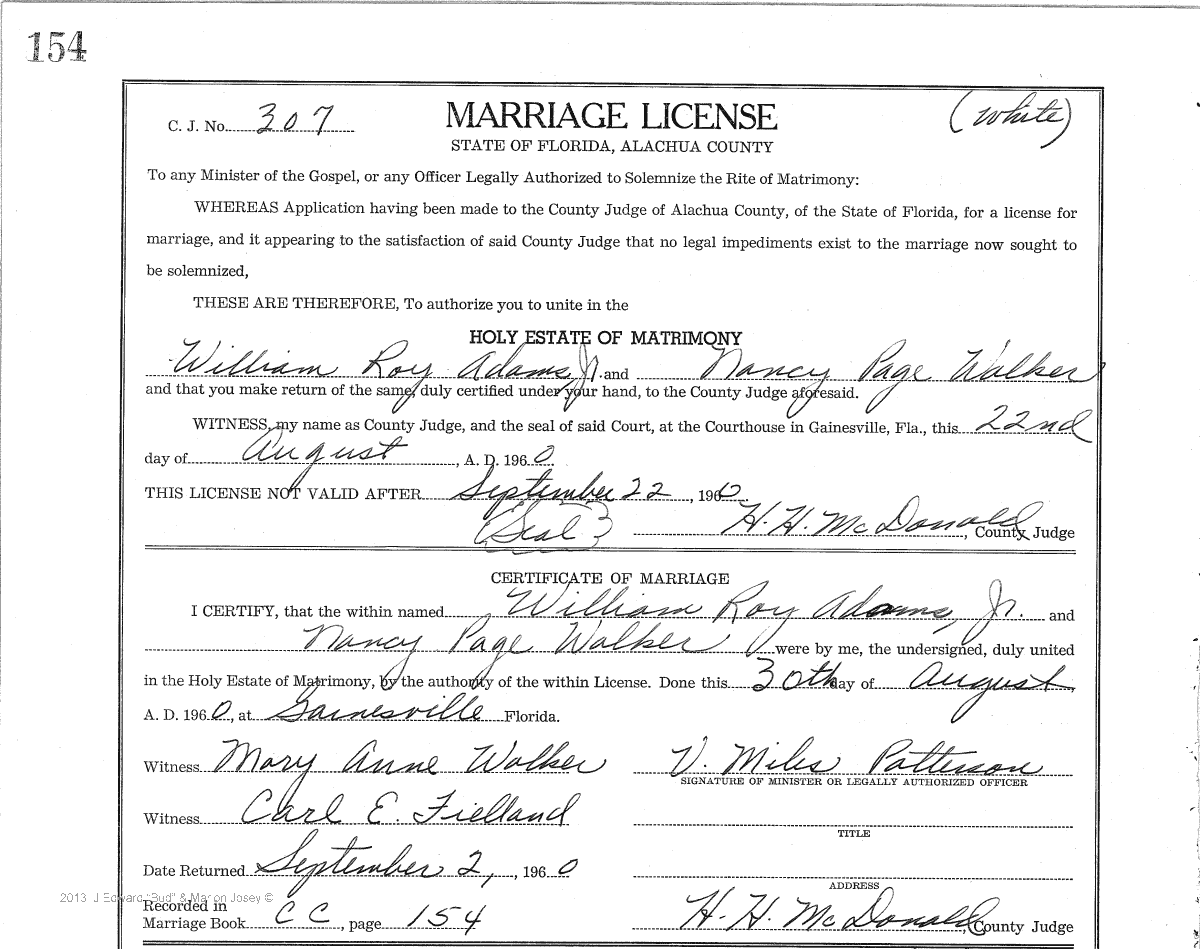 154
C. J. No. 307
MARRIAGE LICENSE
(White)
STATE OF FLORIDA, ALACHUA COUNTY
To any Minister of the Gospel, or any Officer Legally Authorized to Solemnize the Rite of Matrimony:
WHEREAS Application having been made to the County Judge of Alachua County, of the State of Florida, for a license for
marriage, and it appearing to the satisfaction of said County Judge that no legal impediments exist to the marriage now sought to
be solemnized,
THESE ARE THEREFORE, To authorize you to unite in the
HOLY ESTATE OF MATRIMONY
William Roy Adams, Jr. and Nancy Page Walker
and that you make return of the same, duly certified under your hand, to the County Judge aforesaid.
WITNESS, my name as County Judge, and the seal of said Court, at the Courthouse in Gainesville, Fla., this 22nd
day of August, A. D. 1960
THIS LICENSE NOT VALID AFTER September 22, 1960
(Seal) H. H. McDonald, County Judge
CERTIFICATE OF MARRIAGE
I CERTIFY, that the within named William Roy Adams, Jr. and
Nancy Page Walker were by me, the undersigned, duly united
in the Holy Estate of Matrimony, by the authority of the within License. Done this 30th day of August
A. D. 1960, at Gainesville Florida.
Witness Mary Anne Walker V. Miles Patterson
SIGNATURE OF MINISTER OR LEGALLY AUTHORIZED OFFICER
Witness Carl E. Fielland
TITLE
Date Returned September 2, , 1960
ADDRESS
2013 J Edward "Bud" & Marion Josey ©
Recorded in
Marriage Book CC, page 154 H. H. McDonald, County Judge